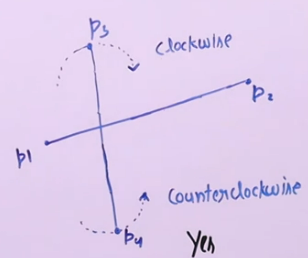 p3
clockwise
p2
p1
counterclockwise
p4
Yes